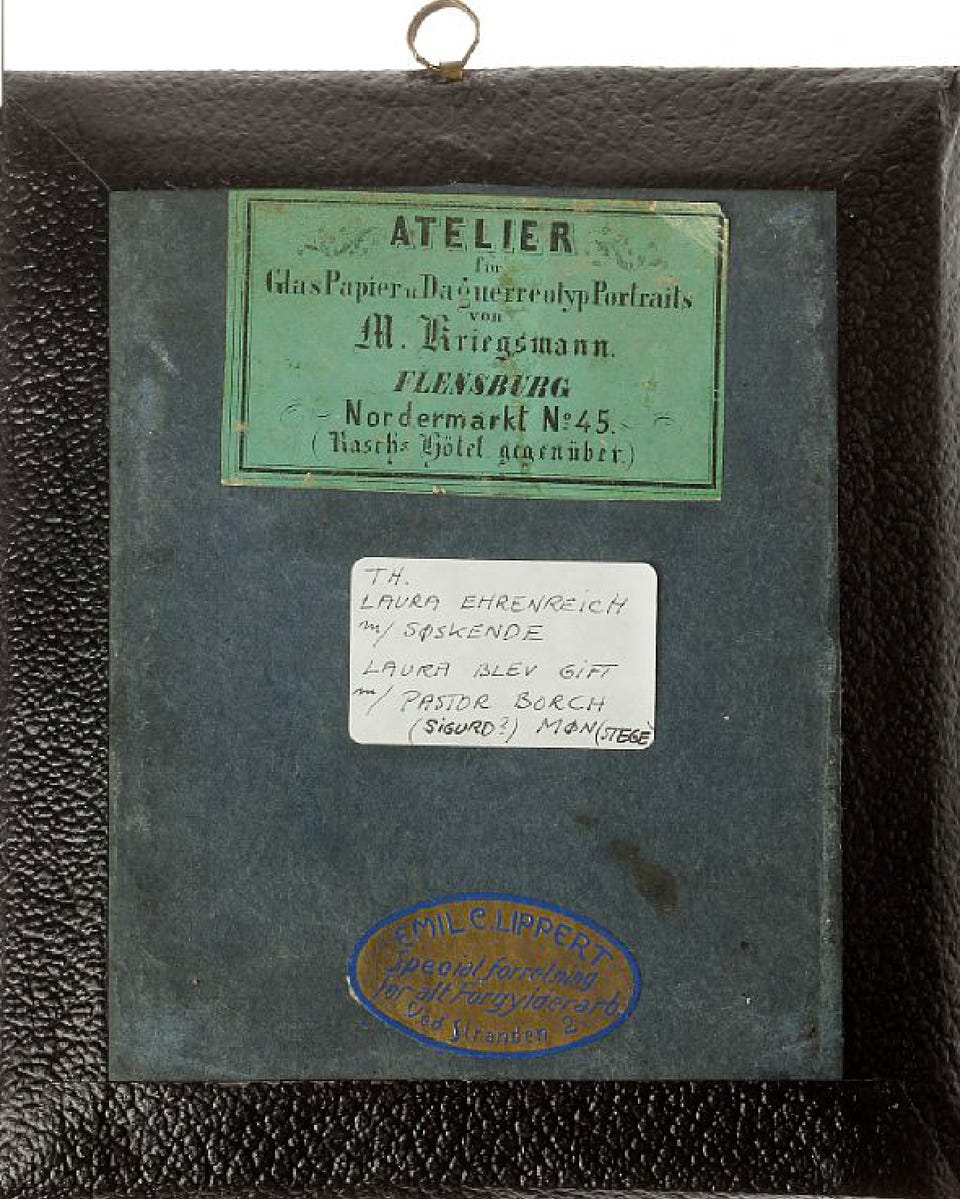 ATELIER
für
Glas Papier u Daguerreotyp Portraits
von
M. Kriegsmann.
FLENSBURG
Nordermarkt No 45.
(Raschs Hôtel gegenüber.)
TH.
LAURA EHRENREICH
m/ SØSKENDE
LAURA BLEV GIFT
m/ PASTOR BORCH
(SIGURD?) MØN (STEGE)
EMIL C. LIPPERT
Specialforretning
for alt Forgylderarb.
Ved Stranden 2